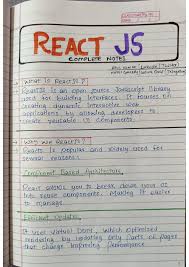 REACT JS
COMPLETE NOTES
What is ReactJS?
ReactJS is an open source JavaScript library
used for building interfaces. It focuses on
creating dynamic interactive web
applications by allowing developers to
create reusable UI components.
Why use ReactJS?
React is popular and widely used for
several reasons.
Component Based Architecture
React allows you to break down your UI
into reuse components. Making it easier
to manage.
Efficient Updates
It uses Virtual Dom, which optimized
rendering by updating only parts of pages
that change improving performance